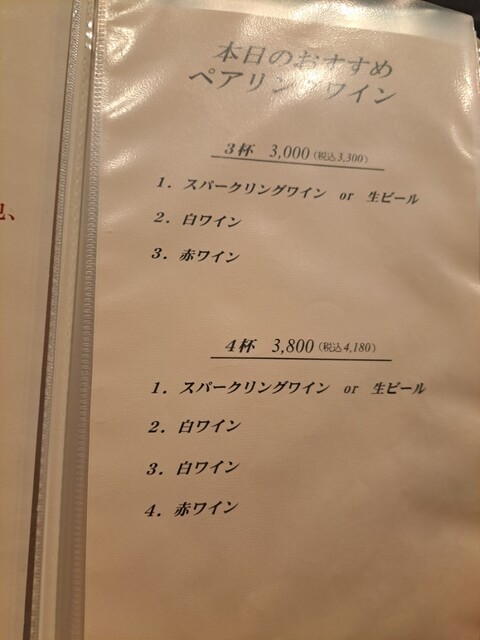 本日のおすすめ
ペアリングワイン
3杯 3,000(税込3,300)
1. スパークリングワイン or 生ビール
2. 白ワイン
3. 赤ワイン
4杯 3,800(税込4,180)
1. スパークリングワイン or 生ビール
2. 白ワイン
3. 白ワイン
4. 赤ワイン